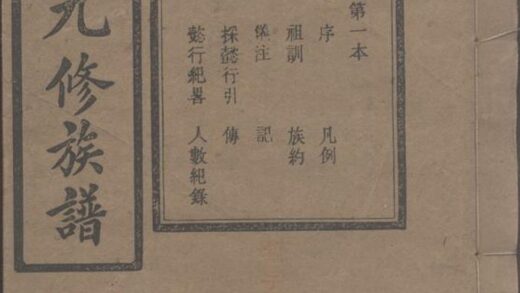 第一本
序 凡例
祖訓 族約
儀注 記
採懿行引 傳
懿行紀畧 人數紀錄
九修族譜